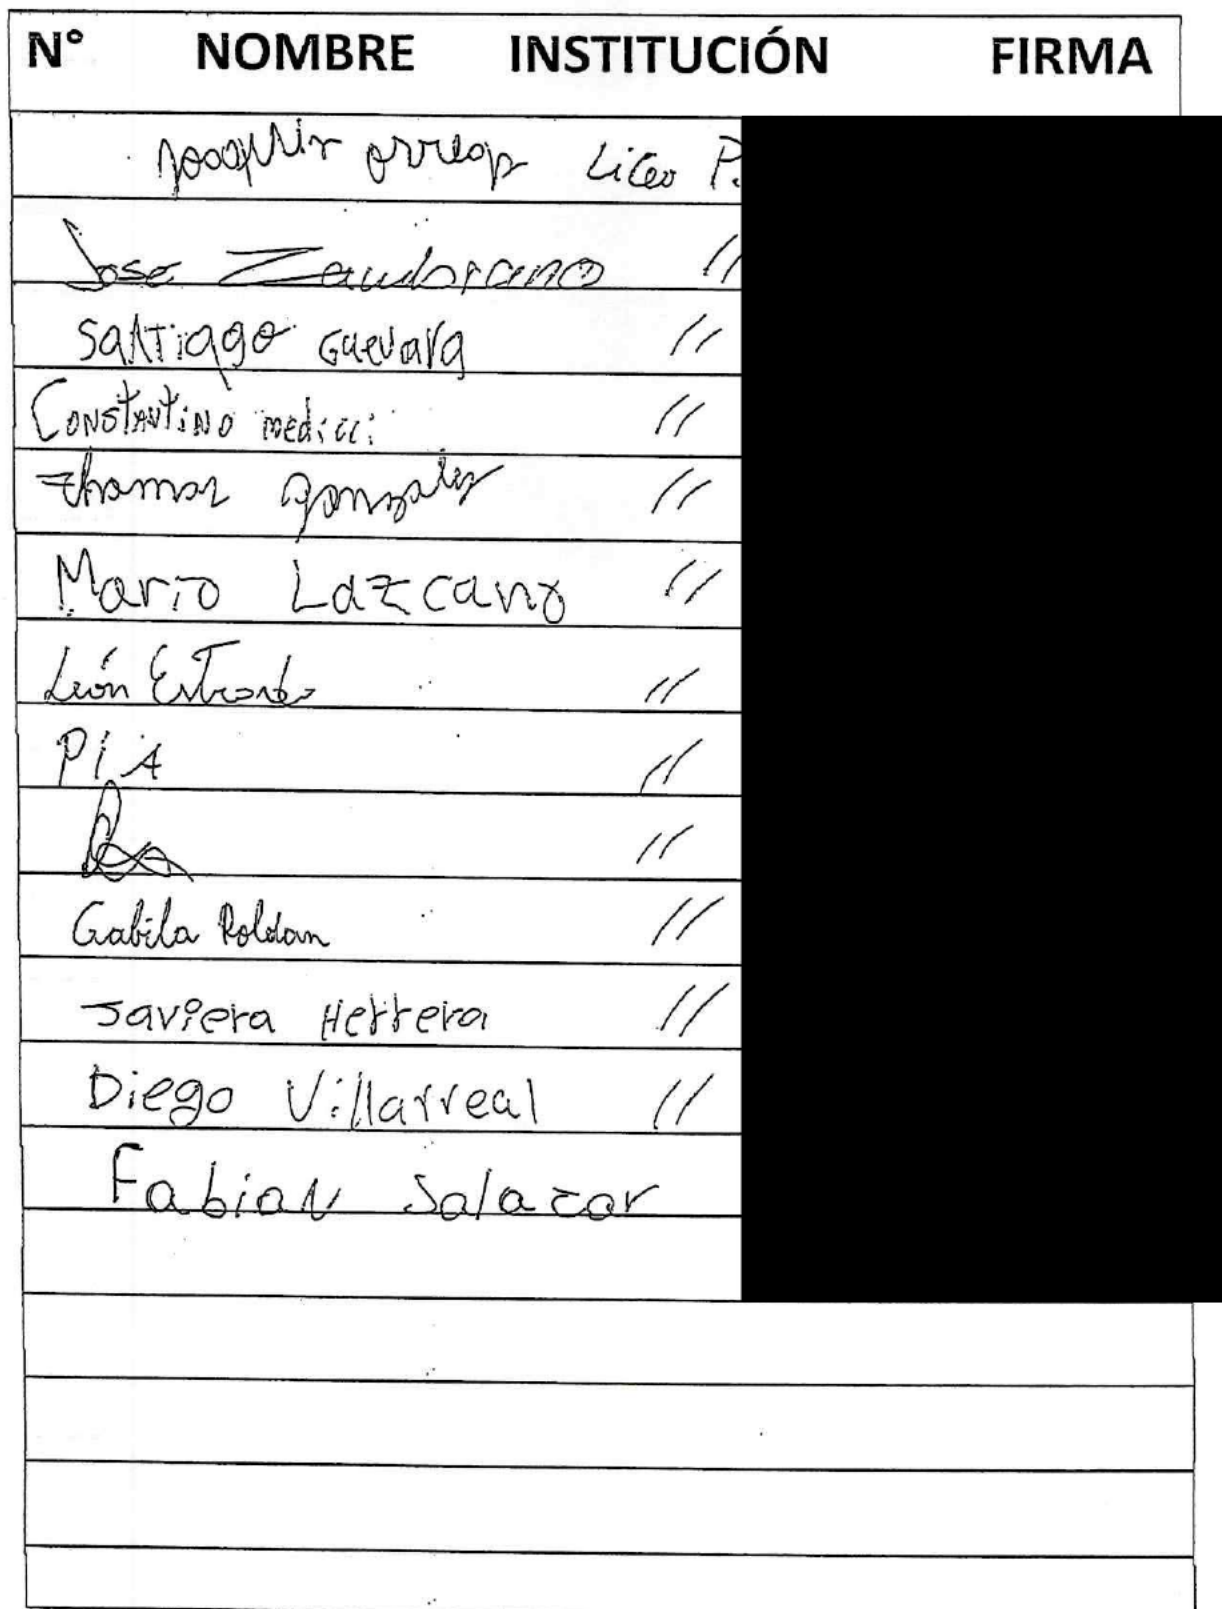 N° NOMBRE INSTITUCIÓN FIRMA
Liceo P.
Jose Zambrano //
Santiago Guevara //
Constantino medicci //
Thomas gonzalez //
Mario Lazcano //
León Estrada //
PIA //
//
Gabila Roldan //
Javiera Herrera //
Diego Villarreal //
Fabian Salazar